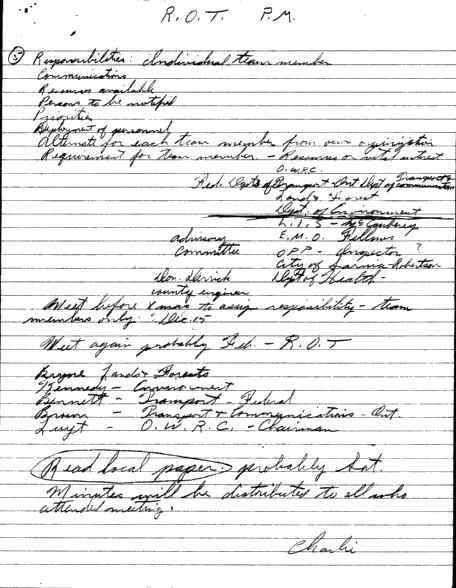 R.O.T. P.M.
5 Responsibilities: Individual team member
Communications
Resources available
Persons to be notified
Priorities
Deployment of personnel
Alternate for each team member from own organization
Requirement for team member. - Resources or vital interest
O.W.R.C.
Fed. Dept of Transport - Ont Dept of Transport & Communication
Lands & Forest
Dept. of Environment
L.I.S -
advisory E.M.O. Fellows
committee OPP - Inspector ?
City of Sarnia - Robertson
Don. Derrick Dept of Health -
county engineer
Meet before Xmas to assign resposibility - team
members only. Dec. 15
Meet again probably Feb. - R.O.T
Lands & Forests
Kennedy - Environment
Bennett - Transport - Federal
Brown - Transport & Communications - Ont.
Luyt - O.W.R.C. - Chairman
Read local paper. probably Sat.
Minutes will be distributed to all who
attended meeting.
Charlie